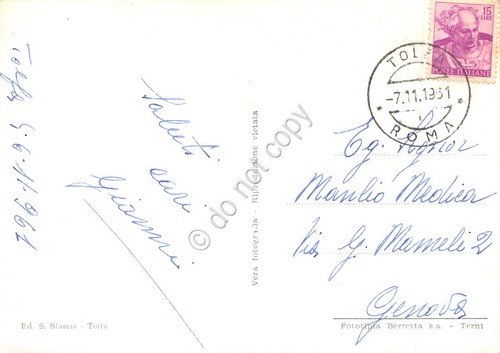 Tolfa 5-6-11-961
Saluti
cari
Gianni
Ed. S. Sfascia - Tolfa
Vera fotografia - Riproduzione vietata
© do not copy
15
LIRE
POSTE ITALIANE
TOLFA
-7.11.1961
* ROMA *
Eg. Signor
Manlio Medica
Via G. Mameli 2
Genova
Fototipia Berretta s.a. - Terni